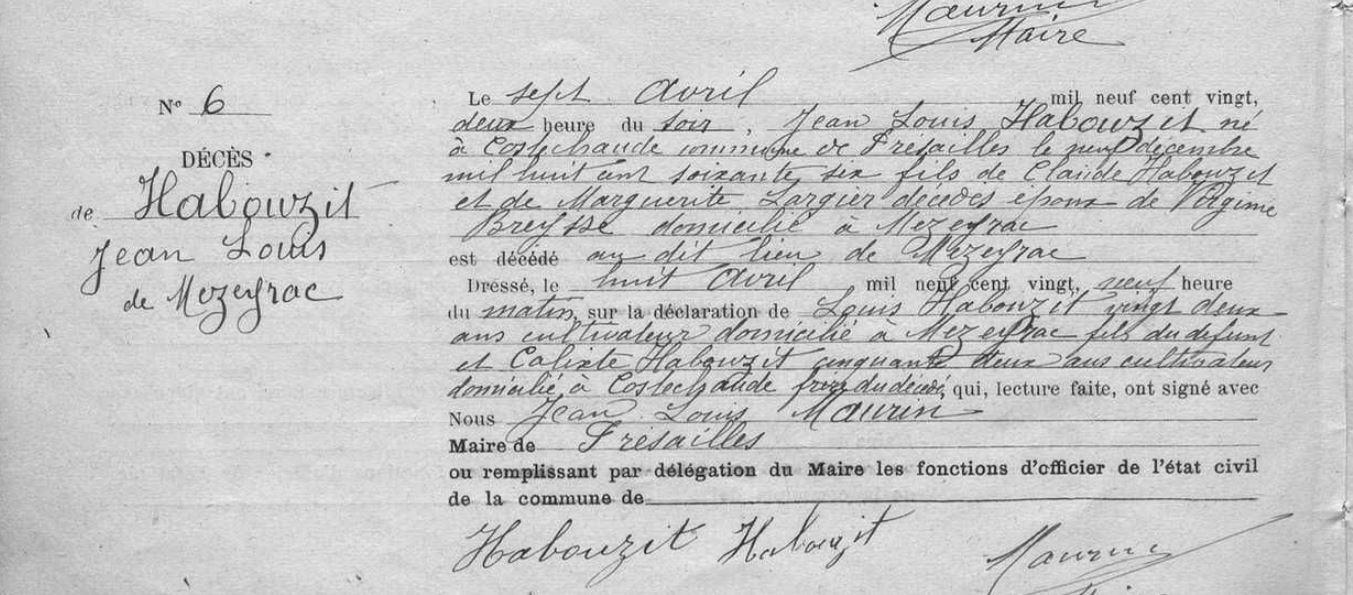 Maurin
Maire
N° 6
DÉCÈS
de Habouzit
Jean Louis
de Mezeyrac
Le sept Avril mil neuf cent vingt,
deux heure du soir, Jean Louis Habouzit né
à Costechaude commune de Présailles le neuf décembre
mil huit cent soixante six fils de Claude Habouzit
et de Marguerite Largier décédés époux de Virginie
Breysse domicilié à Mezeyrac
est décédé au dit lieu de Mezeyrac
Dressé, le huit Avril mil neuf cent vingt, neuf heure
du matin, sur la déclaration de Louis Habouzit vingt deux
ans cultivateur domicilié à Mezeyrac fils du defunt
et Calixte Habouzit cinquante deux ans cultivateur
domicilié à Costechaude frère du décédé, qui, lecture faite, ont signé avec
Nous Jean Louis Maurin
Maire de Présailles
ou remplissant par délégation du Maire les fonctions d'officier de l'état civil
de la commune de
Habouzit Habouzit Maurin